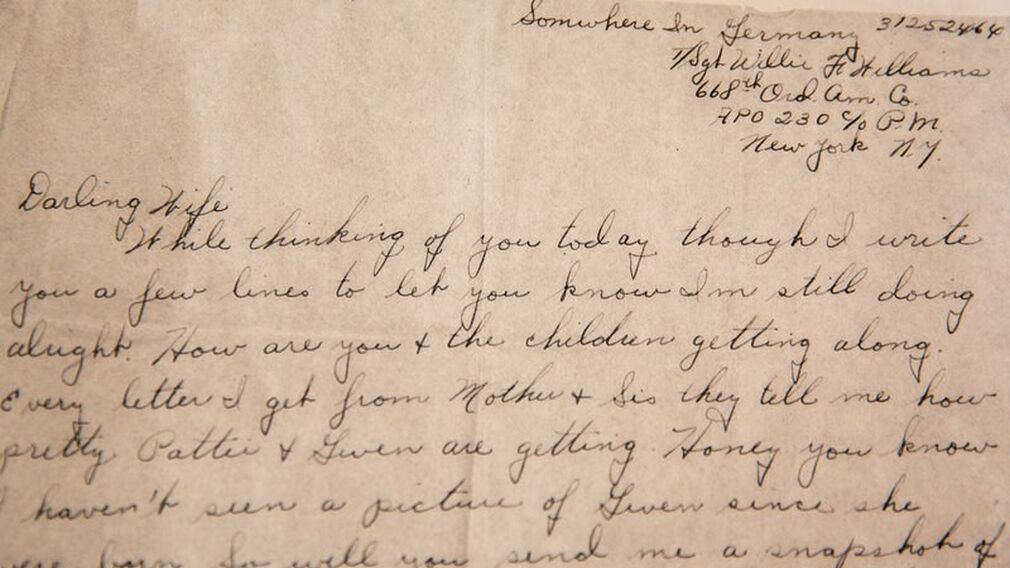 Somwhere In Germany 31252464
T/Sgt Willie F Williams
668th Ord. Am. Co.
APO 230 c/o P.M.
New York N.Y.
Darling Wife
While thinking of you today though I write
you a few lines to let you know I'm still doing
alright. How are you & the children getting along.
Every letter I get from Mother & Sis they tell me how
pretty Pattie & Gwen are getting. Honey you know
I haven't seen a picture of Gwen since she
were born So will you send me a snapshot of